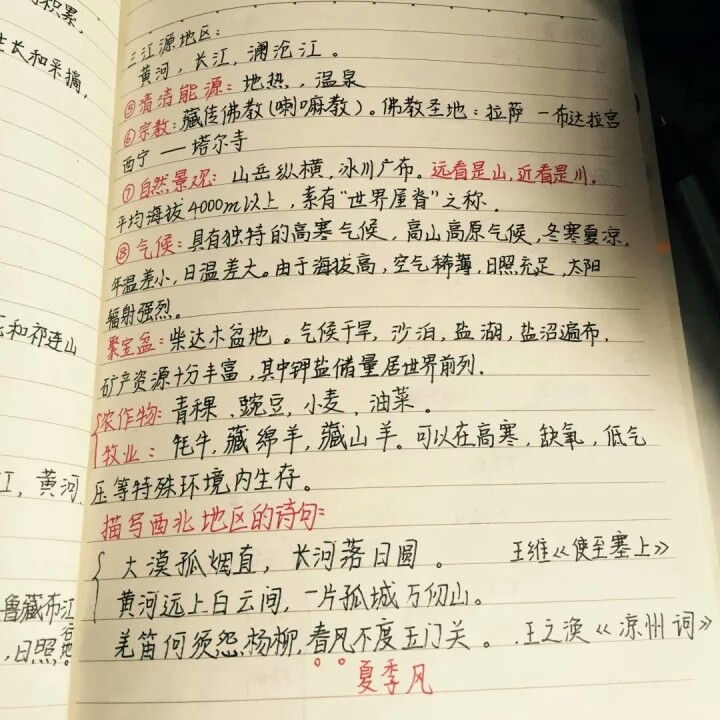 积累,
生长和采摘,
和祁连山
江, 黄河,
鲁藏布江
谷地
, 日照
三江源地区:
黄河, 长江, 澜沧江。
⑤清洁能源: 地热, 温泉
⑥宗教: 藏传佛教(喇嘛教)。佛教圣地: 拉萨 — 布达拉宫
西宁 — 塔尔寺
⑦自然景观: 山岳纵横, 冰川广布。远看是山, 近看是川。
平均海拔4000m以上, 素有"世界屋脊"之称.
⑧气候: 具有独特的高寒气候, 高山高原气候, 冬寒夏凉,
年温差小, 日温差大。由于海拔高, 空气稀薄, 日照充足, 太阳
辐射强烈。
聚宝盆: 柴达木盆地。气候干旱, 沙泊, 盐湖, 盐沼遍布,
矿产资源十分丰富, 其中钾盐储量居世界前列.
农作物: 青稞, 豌豆, 小麦, 油菜。
牧业: 牦牛, 藏绵羊, 藏山羊。可以在高寒, 缺氧, 低气
压等特殊环境内生存。
描写西北地区的诗句:
大漠孤烟直, 长河落日圆。 王维《使至塞上》
黄河远上白云间, 一片孤城万仞山。
羌笛何须怨杨柳, 春风不度玉门关。 王之涣《凉州词》
夏季风